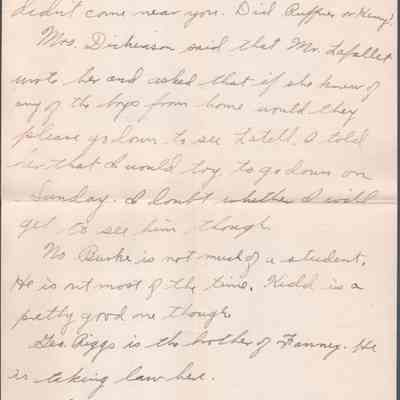 didn't come near you. Did Ruffner or Kenny?
Mrs. Dickinson said that Mr. Lafallet
wrote her and asked that if she knew of
any of the boys from home would they
please go down to see Estell. I told
her that I would try to go down on
Sunday. I doubt whether I will
get to see him though.
No Burke is not much of a student.
He is out most of the time. Kidd is a
pretty good one though.
Geo. Riggs is the brother of Fanney. He
is taking law here.